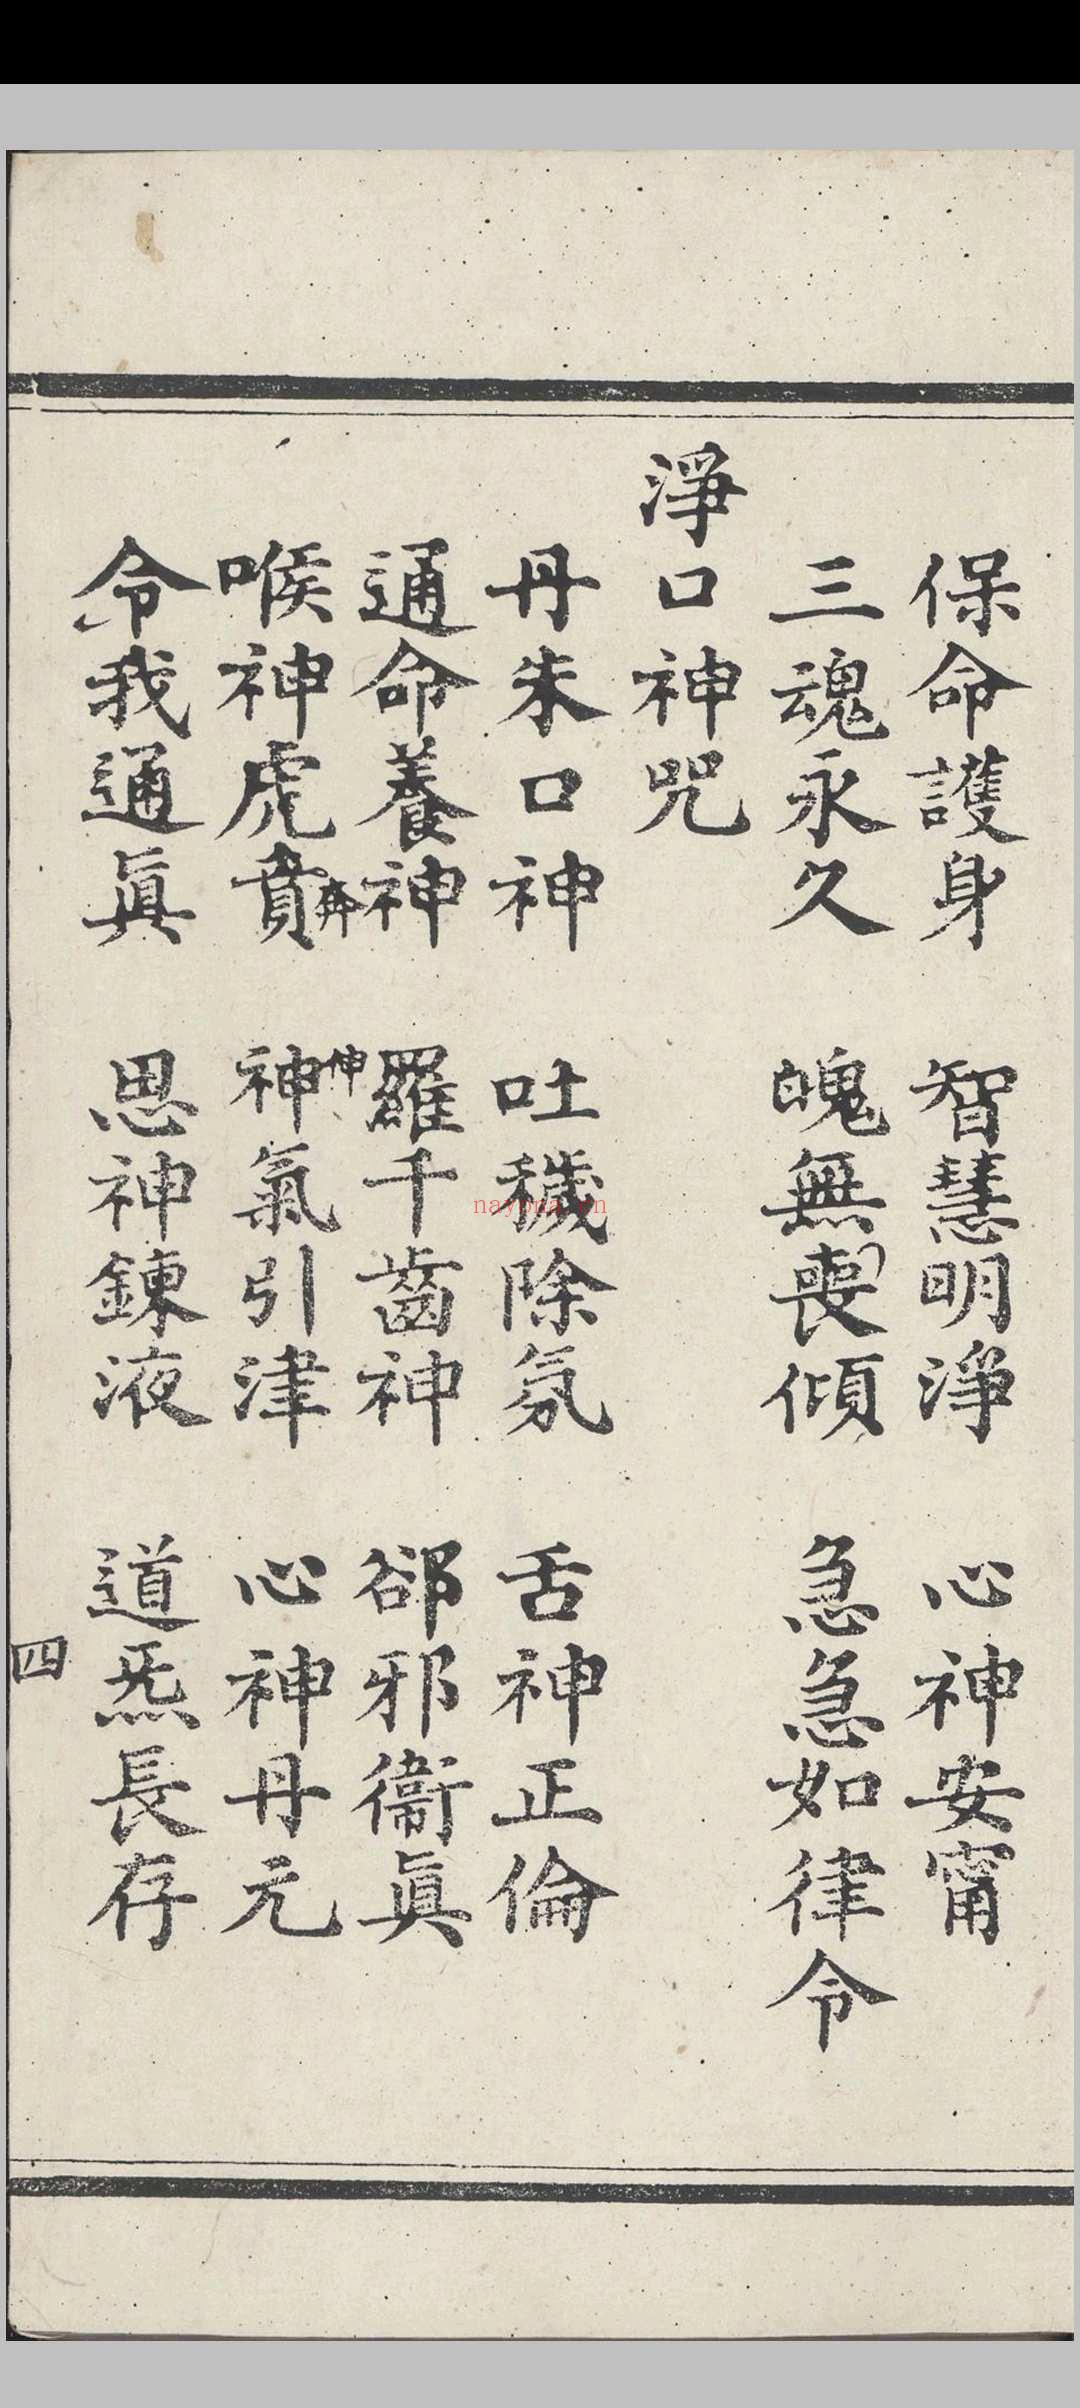 保命護身 智慧明淨 心神安甯
三魂永久 魄無喪傾 急急如律令
淨口神咒
丹朱口神 吐穢除氛 舌神正倫
通命養神 羅千齒神 郤邪衞眞
喉神虎賁奔 神神氣引津 心神丹元
令我通眞 思神鍊液 道炁長存
四
nayona.cn